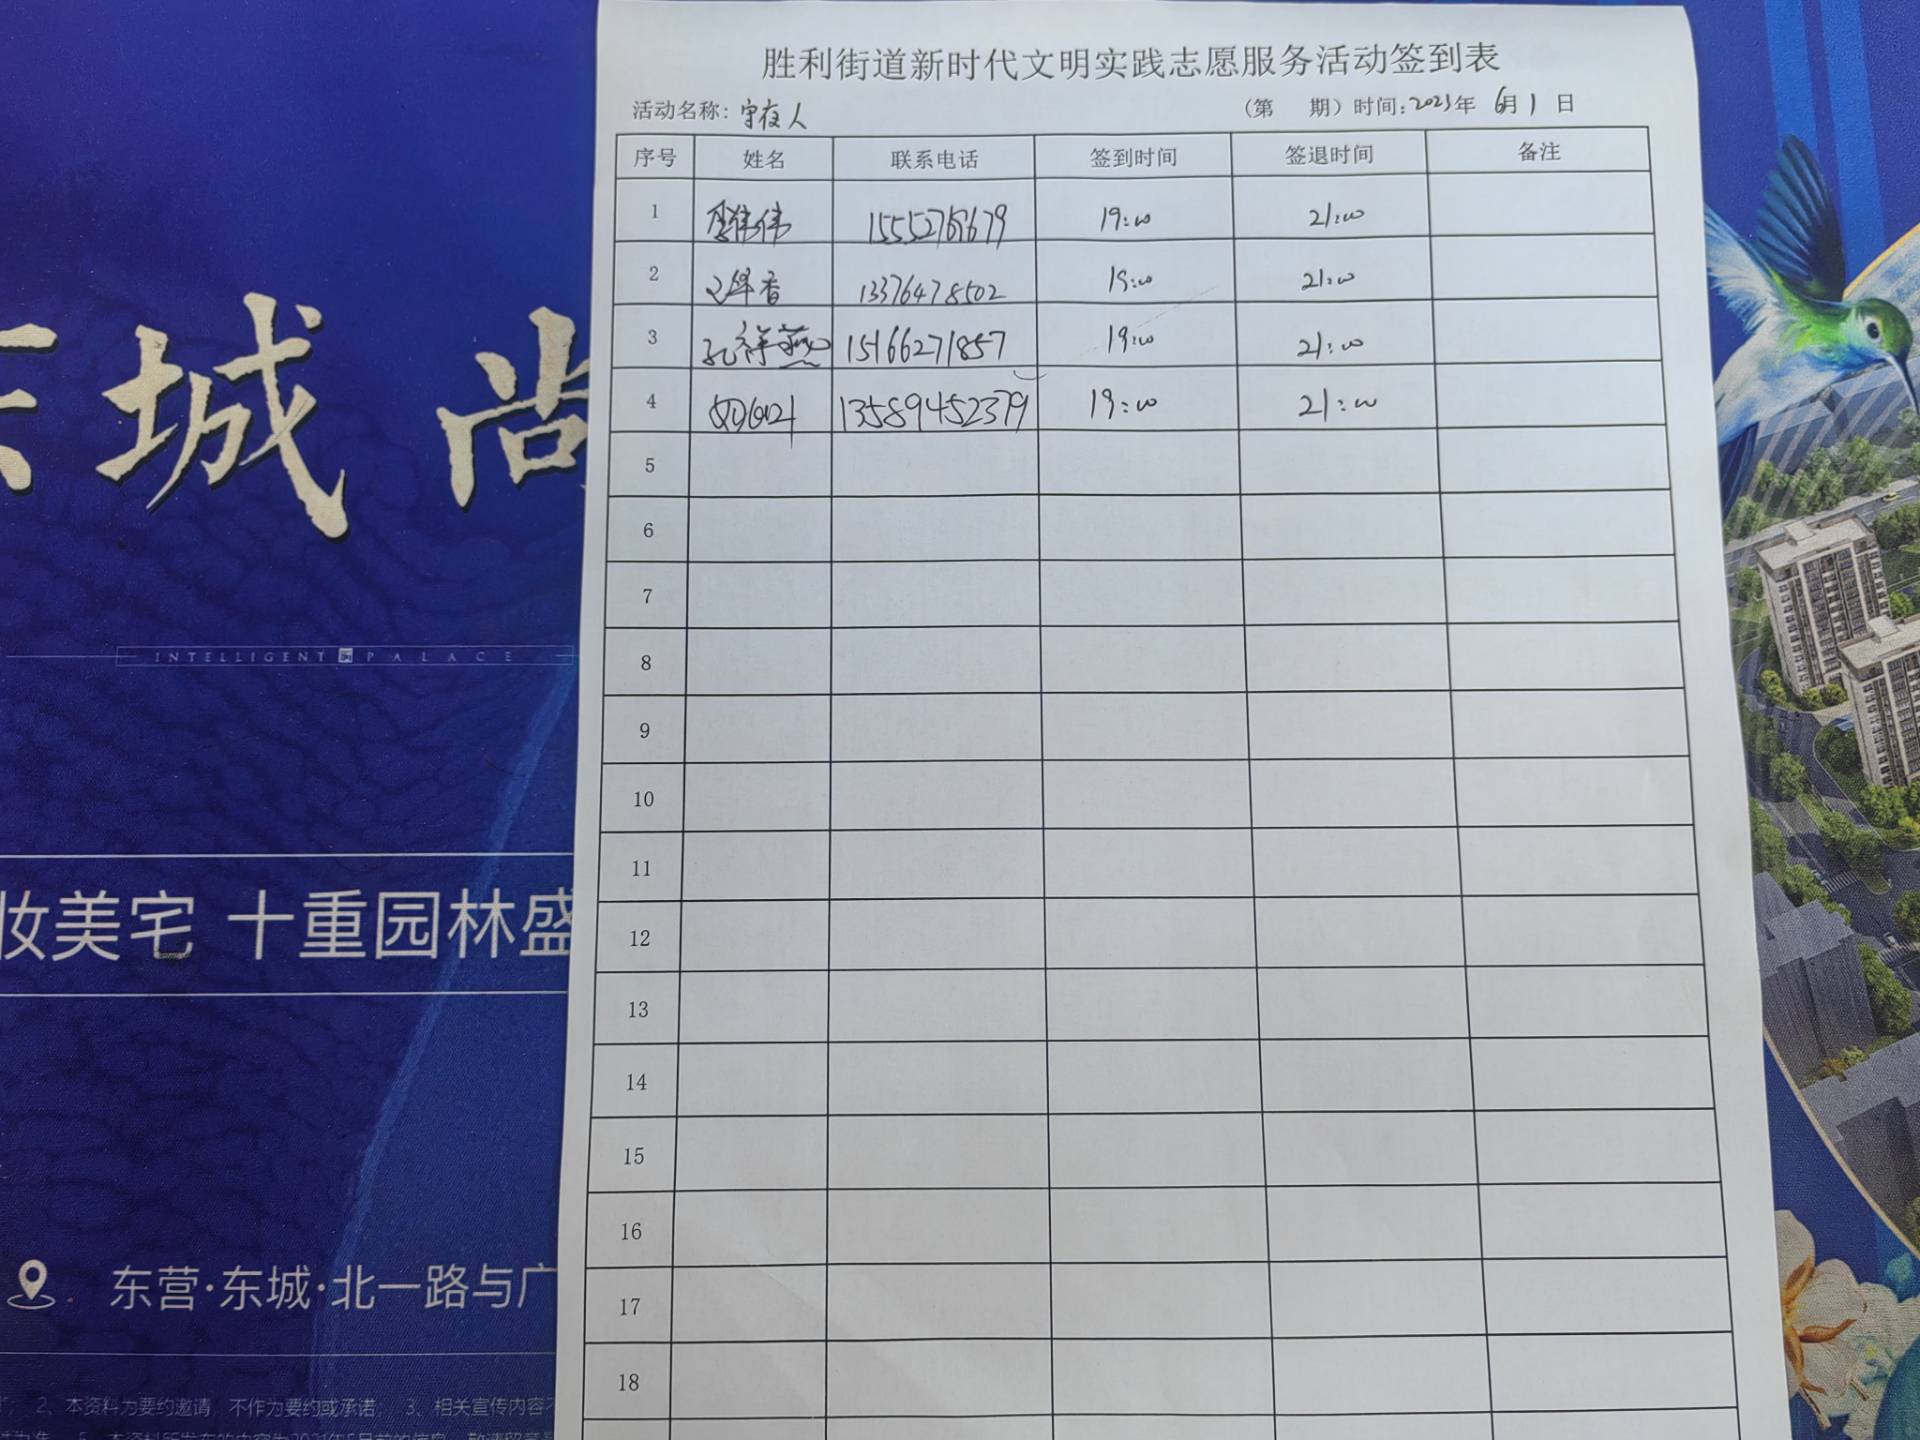 胜利街道新时代文明实践志愿服务活动签到表
活动名称: 守夜人 （第 期）时间: 2023年 6月 1 日
序号 姓名 联系电话 签到时间 签退时间 备注
1 19:00 21:00
2 13376478502 19:00 21:00
3 孔祥燕 15166271857 19:00 21:00
4 13589452379 19:00 21:00
5
6
7
8
9
10
11
12
13
14
15
16
17
18
东城 尚
INTELLIGENT PALACE
妆美宅 十重园林盛
东营·东城·北一路与广
2、本资料为要约邀请，不作为要约或承诺； 3、相关宣传内容不